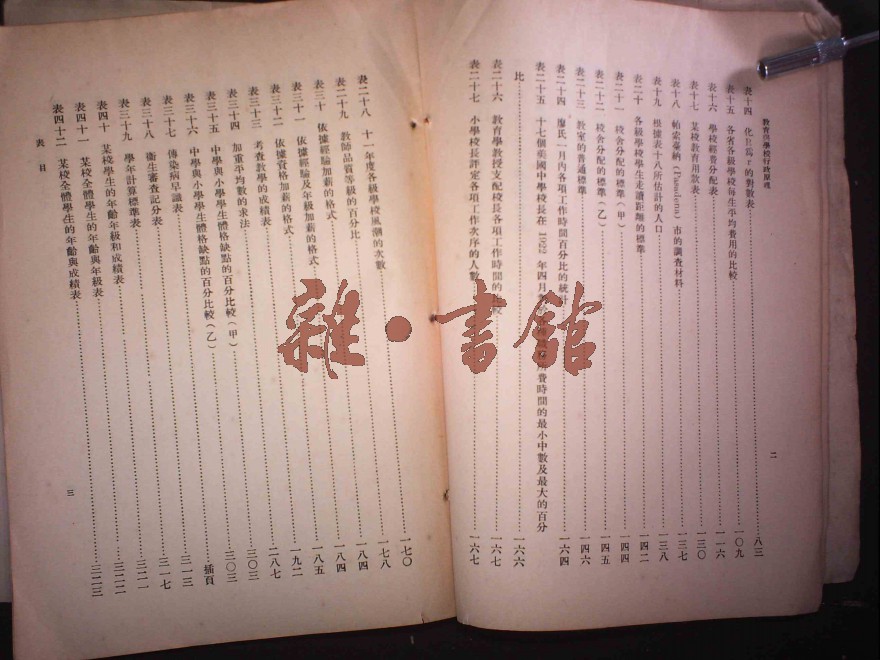 教育與學校行政原理
二
表十四 化R為r的對數表 八三
表十五 各省各級學校每生平均費用的比較 一〇九
表十六 學校經費分配表 一一六
表十七 某校教育用款表 一三〇
表十八 帕索臺納 市的調查材料 一三七
表十九 根據表十八所估計的人口 一三八
表二十 各級學校學生走讀距離的標準 一四二
表二十一 校舍分配的標準(甲) 一四四
表二十二 校舍分配的標準(乙) 一四五
表二十三 教室的普通標準 一四六
表二十四 廖氏一月內各項工作時間百分比的統計 一六四
表二十五 十七個美國中學校長在 1922 年四月 所費時間的最小中數及最大的百分
比 一六六
表二十六 教育學教授支配校長各項工作時間的 較 一六七
表二十七 小學校長評定各項工作次序的人數 一六七
表二十八 十一年度各級學校風潮的次數 一七〇
表二十九 教師品質等級的百分比 一七八
表三十 依據經驗加薪的格式 一八四
表三十一 依據經驗及年級加薪的格式 一八五
表三十二 依據資格加薪的格式 一九二
表三十三 考查教學的成績表 二八七
表三十四 加重平均數的求法 三〇三
表三十五 中學與小學學生體格缺點的百分比較(甲)
表三十六 中學與小學學生體格缺點的百分比較(乙) 插頁
表三十七 傳染病早議表 三一三
表三十八 衞生審查記分表 三一七
表三十九 學年計算標準表 三二一
表四十 某校學生的年齡年級和成績表 三二二
表四十一 某校全體學生的年齡與年級表
表四十二 某校全體學生的年齡與成績表 三二三
表目
三
雜·書館